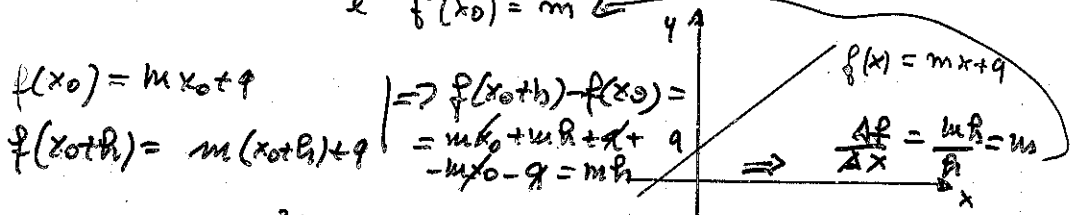 e f'(x₀) = m
y
f(x) = mx+q
f(x₀) = mx₀+q
f(x₀+h) = m(x₀+h)+q
=> f(x₀+h)-f(x₀) =
= mx₀+mh+q+
-mx₀-q = mh
q
=> Δf/Δx = mh/h = m
x